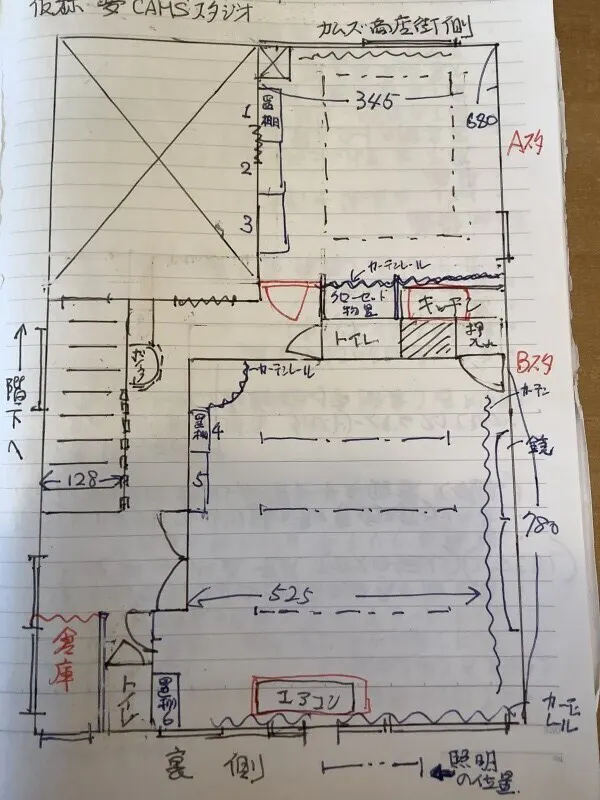 仮称 夢CAMSスタジオ
カムズ商店街側
1
置棚
345
680
Aスタ
2
3
カーテンレール
クローゼット
物置
キッチン
トイレ
押入れ
Bスタ
カーテンレール
カーテン
階下へ
置棚
4
鏡
5
128
780
525
倉庫
トイレ
置棚6
エアコン
カーテン
レール
裏側
照明
の位置